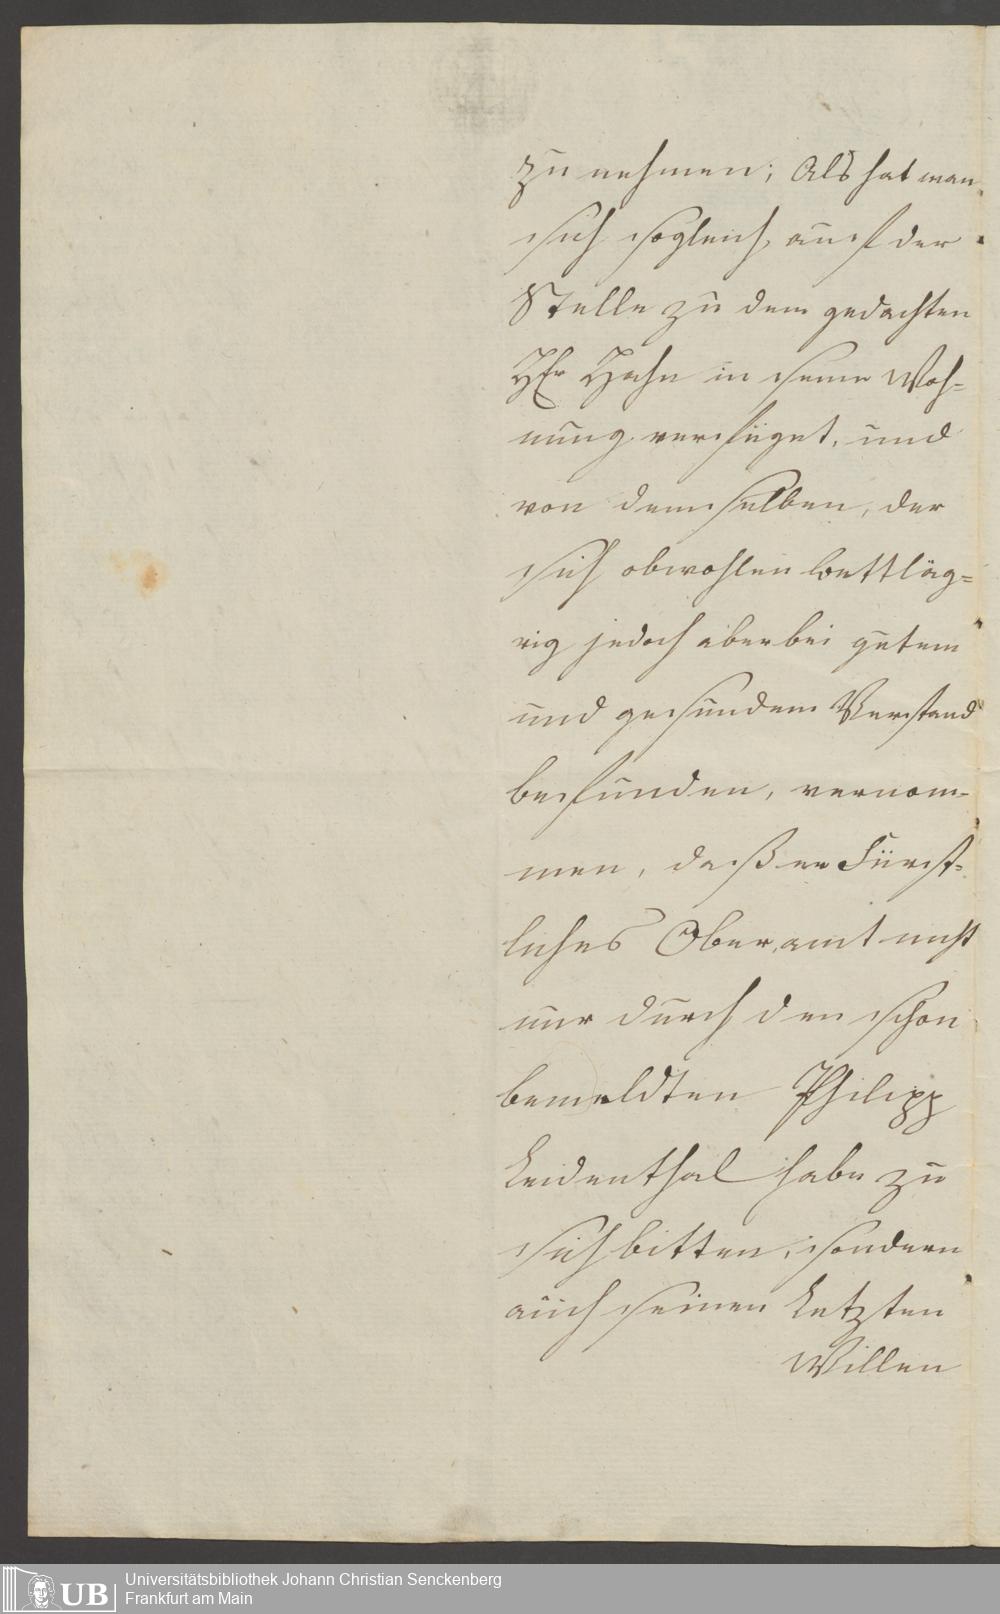 zu nehmen; Als hat man
sich sogleich auf der
Stelle zu dem gedachten
HEr Hahn in seine Woh=
nung verfüget, und
von demselben, der
sich obwohlen bettläg=
rig jedoch aber bei gutem
und gesundem Verstand
befunden, vernom-
men, daß er Fürst-
liches Oberamt nicht
nur durch den schon
bemeldten Philipp
Leidenthal habe zu
sich bitten, sondern
auch seinen Letzten
Willen
UB
Universitätsbibliothek Johann Christian Senckenberg
Frankfurt am Main